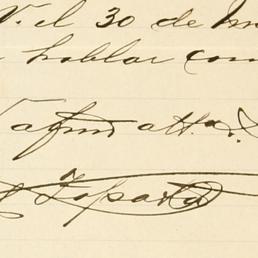 V. el 30 de
hablar con
afmo atto. S.
Zapata